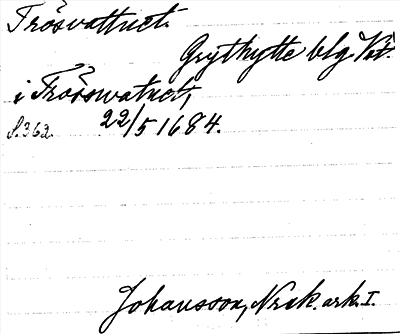 Trösvattnet.
Grythytte blg Vstm.
i Trösswatnet,
S. 362. 22/5 1684.
Johansson, Nrak. ark. I.